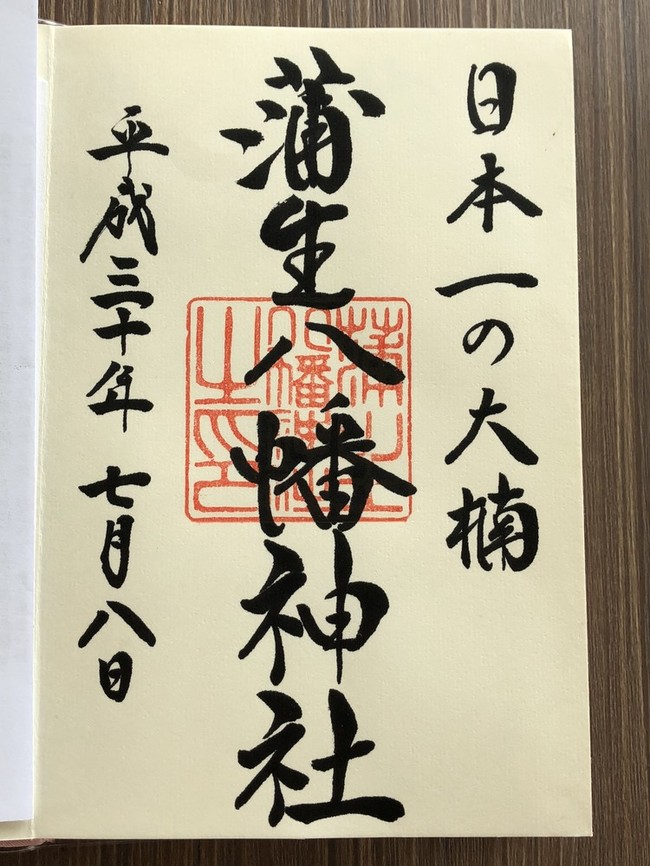 日本一の大楠
蒲生八幡神社
蒲生八幡神社之印
平成三十年 七月八日